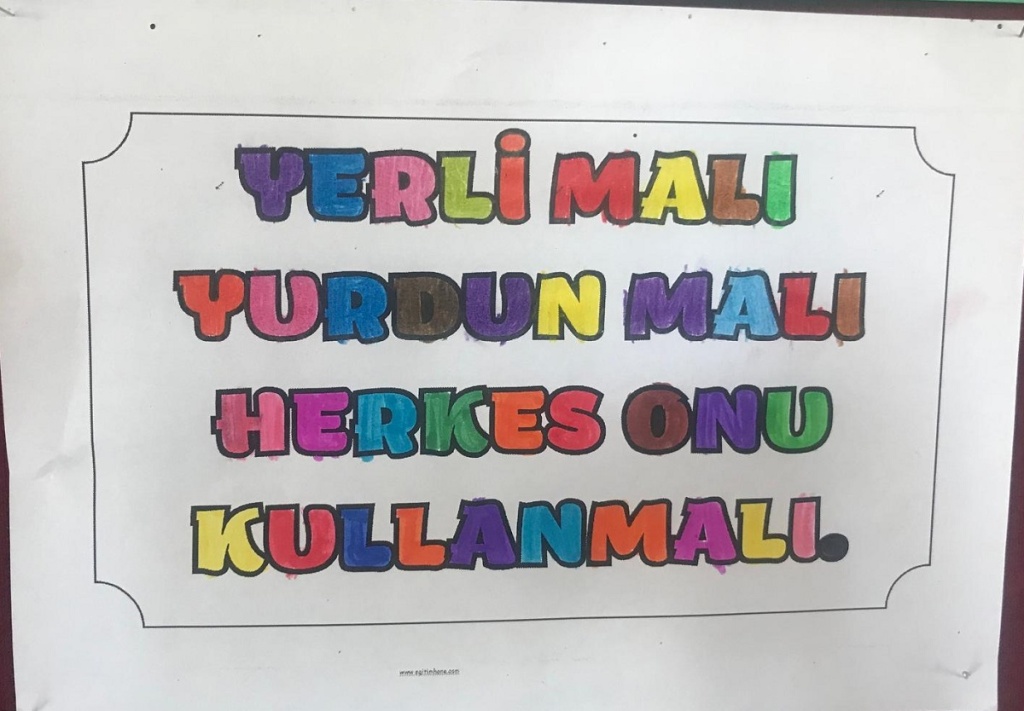 YERLİ MALI
YURDUN MALI
HERKES ONU
KULLANMALI.
www.egitimhane.com